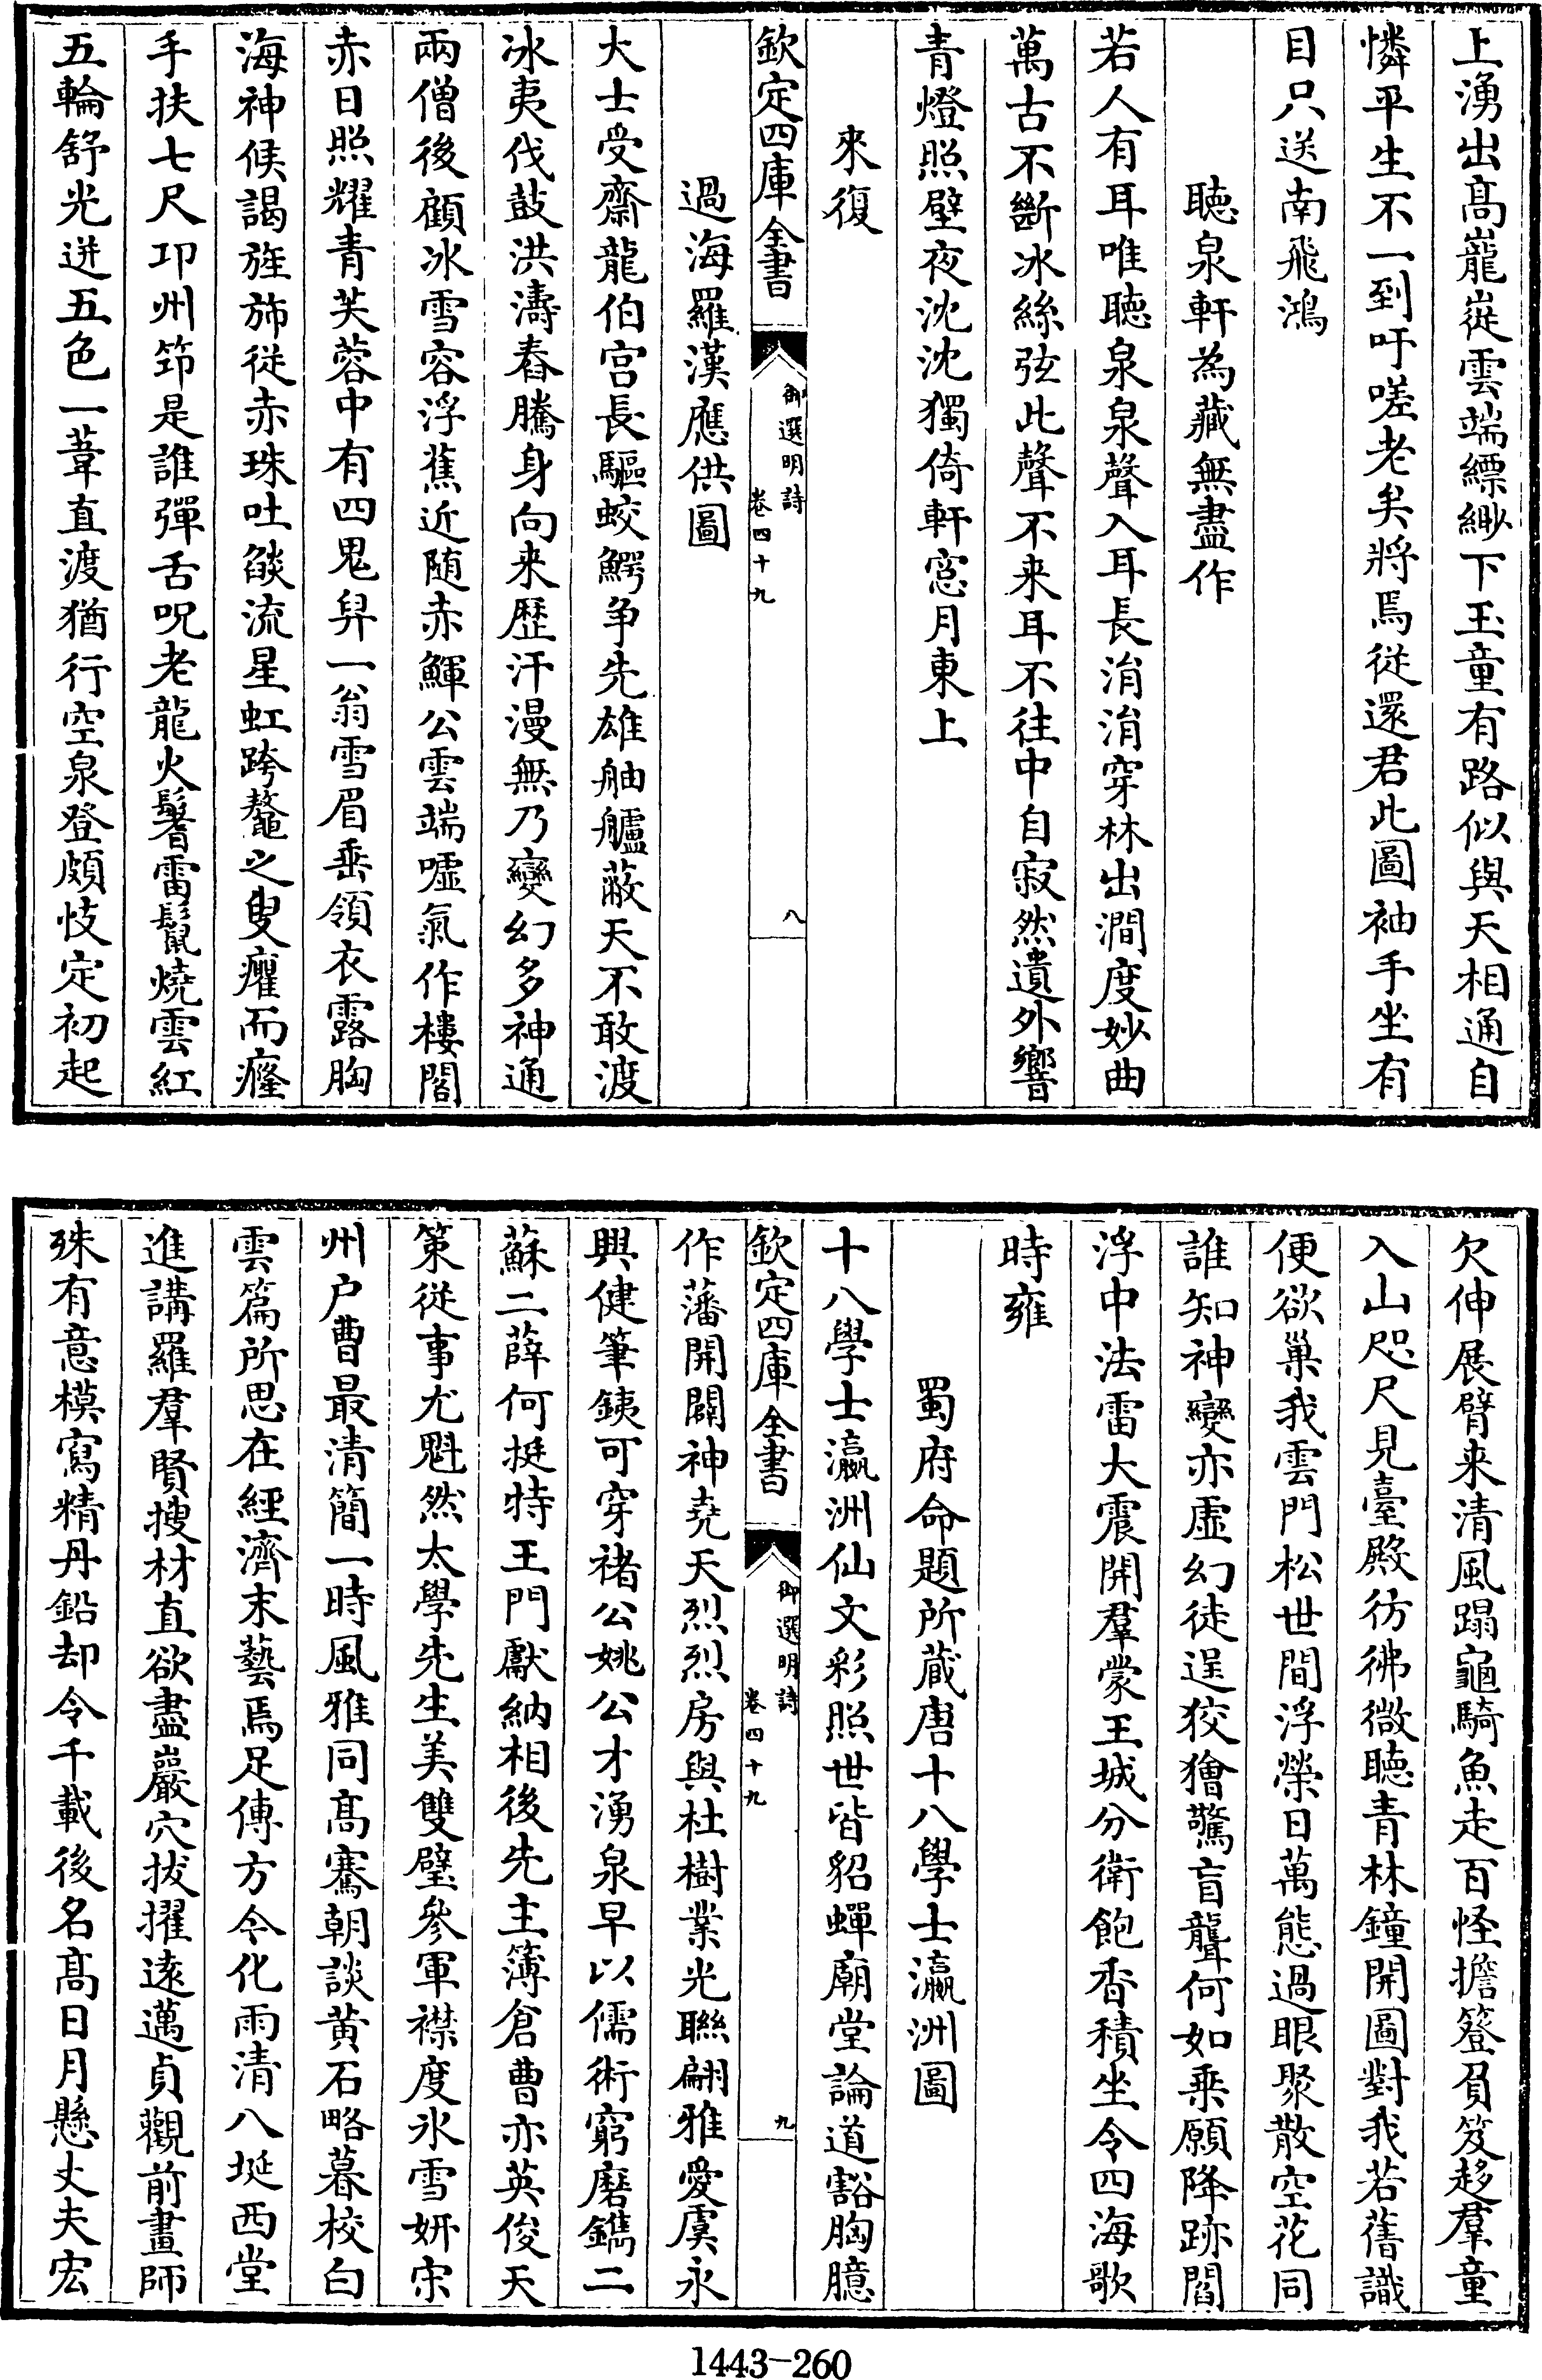 上湧出髙巃嵸雲端縹緲下玉童有路似與天相通自
憐平生不一到吁嗟老矣將焉從還君此圖袖手坐有
目只送南飛鴻
聴泉軒為藏無盡作
若人有耳唯聴泉泉聲入耳長涓涓穿林出澗度妙曲
萬古不斷冰絲弦此聲不来耳不往中自寂然遺外響
青燈照壁夜沈沈獨倚軒窓月東上
來復
欽定四庫全書
御選明詩
卷四十九
八
過海羅漢應供圖
大士受齋龍伯宫長驅蛟鰐争先雄舳艫蔽天不敢渡
冰夷伐鼓洪濤舂騰身向来歴汗漫無乃變幻多神通
兩僧後顧冰雪容浮蕉近随赤鯶公雲端噓氣作樓閣
赤日照耀青芙蓉中有四鬼舁一翁雪眉垂領衣露胸
海神候謁旌斾從赤珠吐燄流星虹跨鼇之叟癯而癃
手扶七尺卭州笻是誰彈舌呪老龍火鬐雷鬛燒雲紅
五輪舒光迸五色一葦直渡猶行空泉登頗忮定初起
欠伸展臂来清風蹋龜騎魚走百怪擔簦負笈趍羣童
入山咫尺見臺殿彷彿微聴青林鐘開圖對我若舊識
便欲巢我雲門松世間浮榮日萬態過眼聚散空花同
誰知神變亦虚幻徒逞狡獪驚盲聾何如乘願降跡閻
浮中法雷大震開羣蒙王城分衛飽香積坐令四海歌
時雍
蜀府命題所蔵唐十八學士瀛洲圖
十八學士瀛洲仙文彩照世皆貂蟬廟堂論道豁胸臆
欽定四庫全書
御選明詩
卷四十九
九
作藩開闢神堯天烈烈房與杜樹業光聯翩雅愛虞永
興健筆銕可穿褚公姚公才湧泉早以儒術窮磨鐫二
蘇二薛何挺特王門獻納相後先主簿倉曹亦英俊天
策從事尤魁然太學先生美雙璧參軍襟度氷雪妍宋
州户曹最清簡一時風雅同髙騫朝談黄石略暮校白
雲篇所思在經濟末藝焉足傳方今化雨清八埏西堂
進講羅羣賢搜材直欲盡巖穴拔擢逺邁貞觀前畫師
殊有意模寫精丹鉛却令千載後名髙日月懸丈夫宏
1443-260